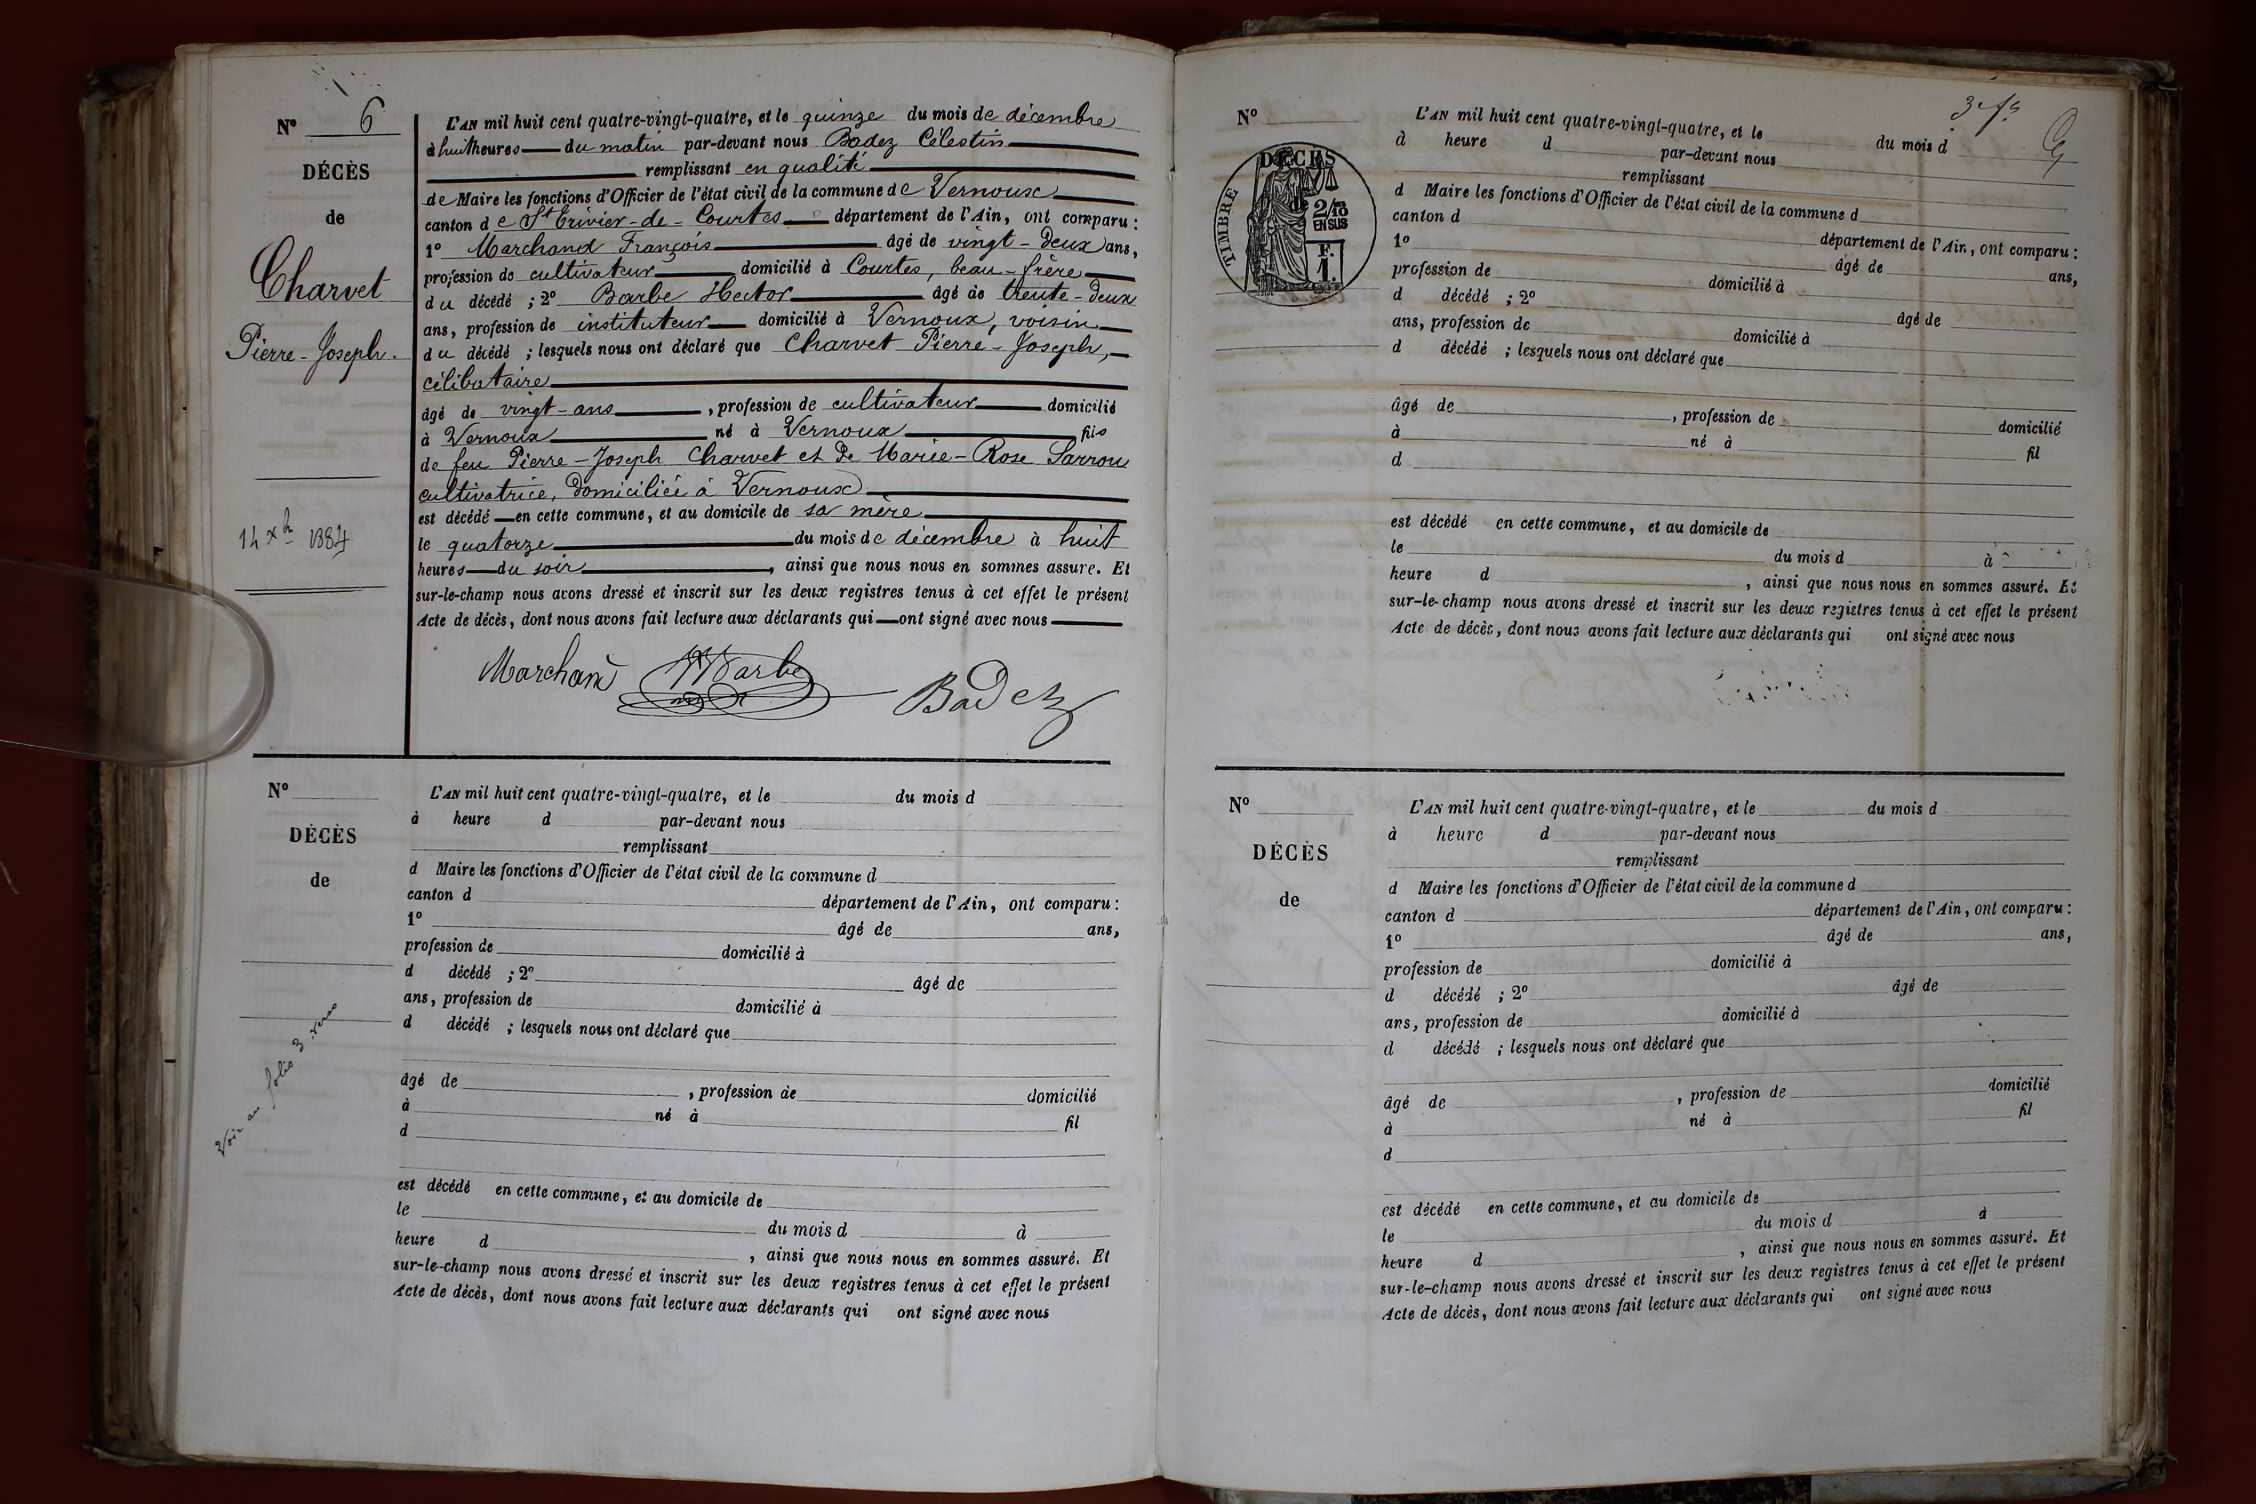 N° 6
DÉCÈS
de
Charvet
Pierre-Joseph.
14 Xbre 1884
L'AN mil huit cent quatre-vingt-quatre, et le quinze du mois de décembre
à huit heures du matin par-devant nous Badez Célestin
remplissant en qualité
de Maire les fonctions d'Officier de l'état civil de la commune de Vernoux
canton de St Trivier-de-Courtes département de l'Ain, ont comparu :
1° Marchand François âgé de vingt-deux ans,
profession de cultivateur domicilié à Courtes, beau-frère
du décédé ; 2° Barbe Hector âgé de trente-deux
ans, profession de instituteur domicilié à Vernoux, voisin
du décédé ; lesquels nous ont déclaré que Charvet Pierre-Joseph,
célibataire
âgé de vingt-ans, profession de cultivateur domicilié
à Vernoux né à Vernoux fils
de feu Pierre-Joseph Charvet et de Marie-Rose Sarron
cultivatrice, domiciliée à Vernoux
est décédé en cette commune, et au domicile de sa mère
le quatorze du mois de décembre à huit
heures du soir, ainsi que nous nous en sommes assuré. Et
sur-le-champ nous avons dressé et inscrit sur les deux registres tenus à cet effet le présent
Acte de décès, dont nous avons fait lecture aux déclarants qui ont signé avec nous
Marchand HBarbe Badez
N°
DÉCÈS
de
Voir au folio 3 verso
L'AN mil huit cent quatre-vingt-quatre, et le du mois d
à heure d par-devant nous
remplissant
d Maire les fonctions d'Officier de l'état civil de la commune d
canton d département de l'Ain, ont comparu :
1° âgé de ans,
profession de domicilié à
d décédé ; 2° âgé de
ans, profession de domicilié à
d décédé ; lesquels nous ont déclaré que
âgé de , profession de domicilié
à né à fil
d
est décédé en cette commune, et au domicile de
le du mois d à
heure d , ainsi que nous nous en sommes assuré. Et
sur-le-champ nous avons dressé et inscrit sur les deux registres tenus à cet effet le présent
Acte de décès, dont nous avons fait lecture aux déclarants qui ont signé avec nous
N°
DÉCÈS
de
TIMBRE
2/10
EN SUS
F.
1.
L'AN mil huit cent quatre-vingt-quatre, et le du mois d
à heure d par-devant nous
remplissant
d Maire les fonctions d'Officier de l'état civil de la commune d
canton d département de l'Ain, ont comparu :
1° âgé de ans,
profession de domicilié à
d décédé ; 2° âgé de
ans, profession de domicilié à
d décédé ; lesquels nous ont déclaré que
âgé de , profession de domicilié
à né à fil
d
est décédé en cette commune, et au domicile de
le du mois d à
heure d , ainsi que nous nous en sommes assuré. Et
sur-le-champ nous avons dressé et inscrit sur les deux registres tenus à cet effet le présent
Acte de décès, dont nous avons fait lecture aux déclarants qui ont signé avec nous
N°
DÉCÈS
de
L'AN mil huit cent quatre-vingt-quatre, et le du mois d
à heure d par-devant nous
remplissant
d Maire les fonctions d'Officier de l'état civil de la commune d
canton d département de l'Ain, ont comparu :
1° âgé de ans,
profession de domicilié à
d décédé ; 2° âgé de
ans, profession de domicilié à
d décédé ; lesquels nous ont déclaré que
âgé de , profession de domicilié
à né à fil
d
est décédé en cette commune, et au domicile de
le du mois d à
heure d , ainsi que nous nous en sommes assuré. Et
sur-le-champ nous avons dressé et inscrit sur les deux registres tenus à cet effet le présent
Acte de décès, dont nous avons fait lecture aux déclarants qui ont signé avec nous